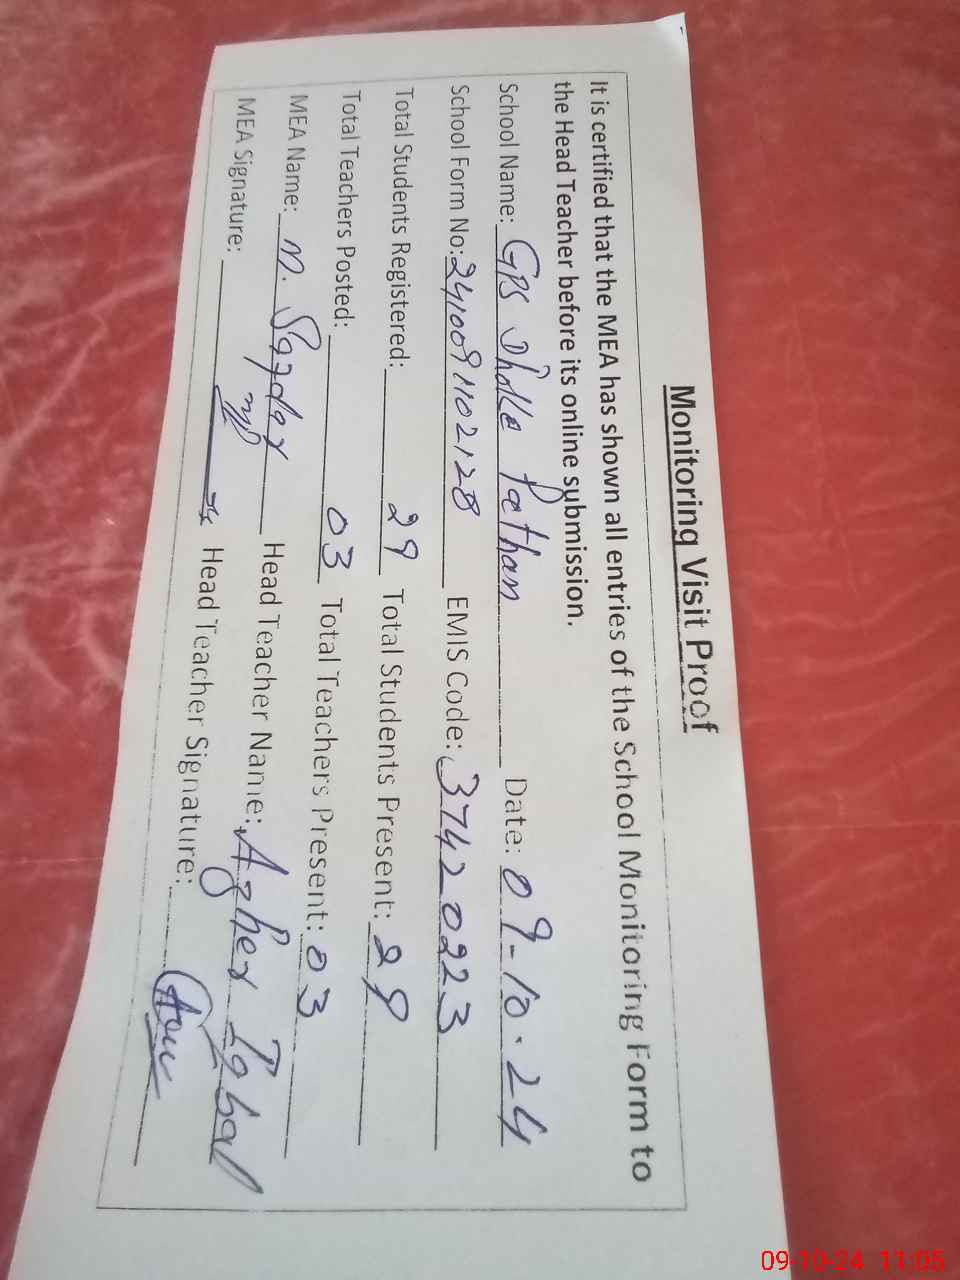 Monitoring Visit Proof
It is certified that the MEA has shown all entries of the School Monitoring Form to
the Head Teacher before its online submission.
School Name: GPS Dhalla Pathan Date: 09-10-24
School Form No: 2410091102128 EMIS Code: 37422 0223
Total Students Registered: 29 Total Students Present: 29
Total Teachers Posted: 03 Total Teachers Present: 03
MEA Name: M. Safdar Head Teacher Name: Azher Iqbal
MEA Signature: Head Teacher Signature:
09-10-24 11:05